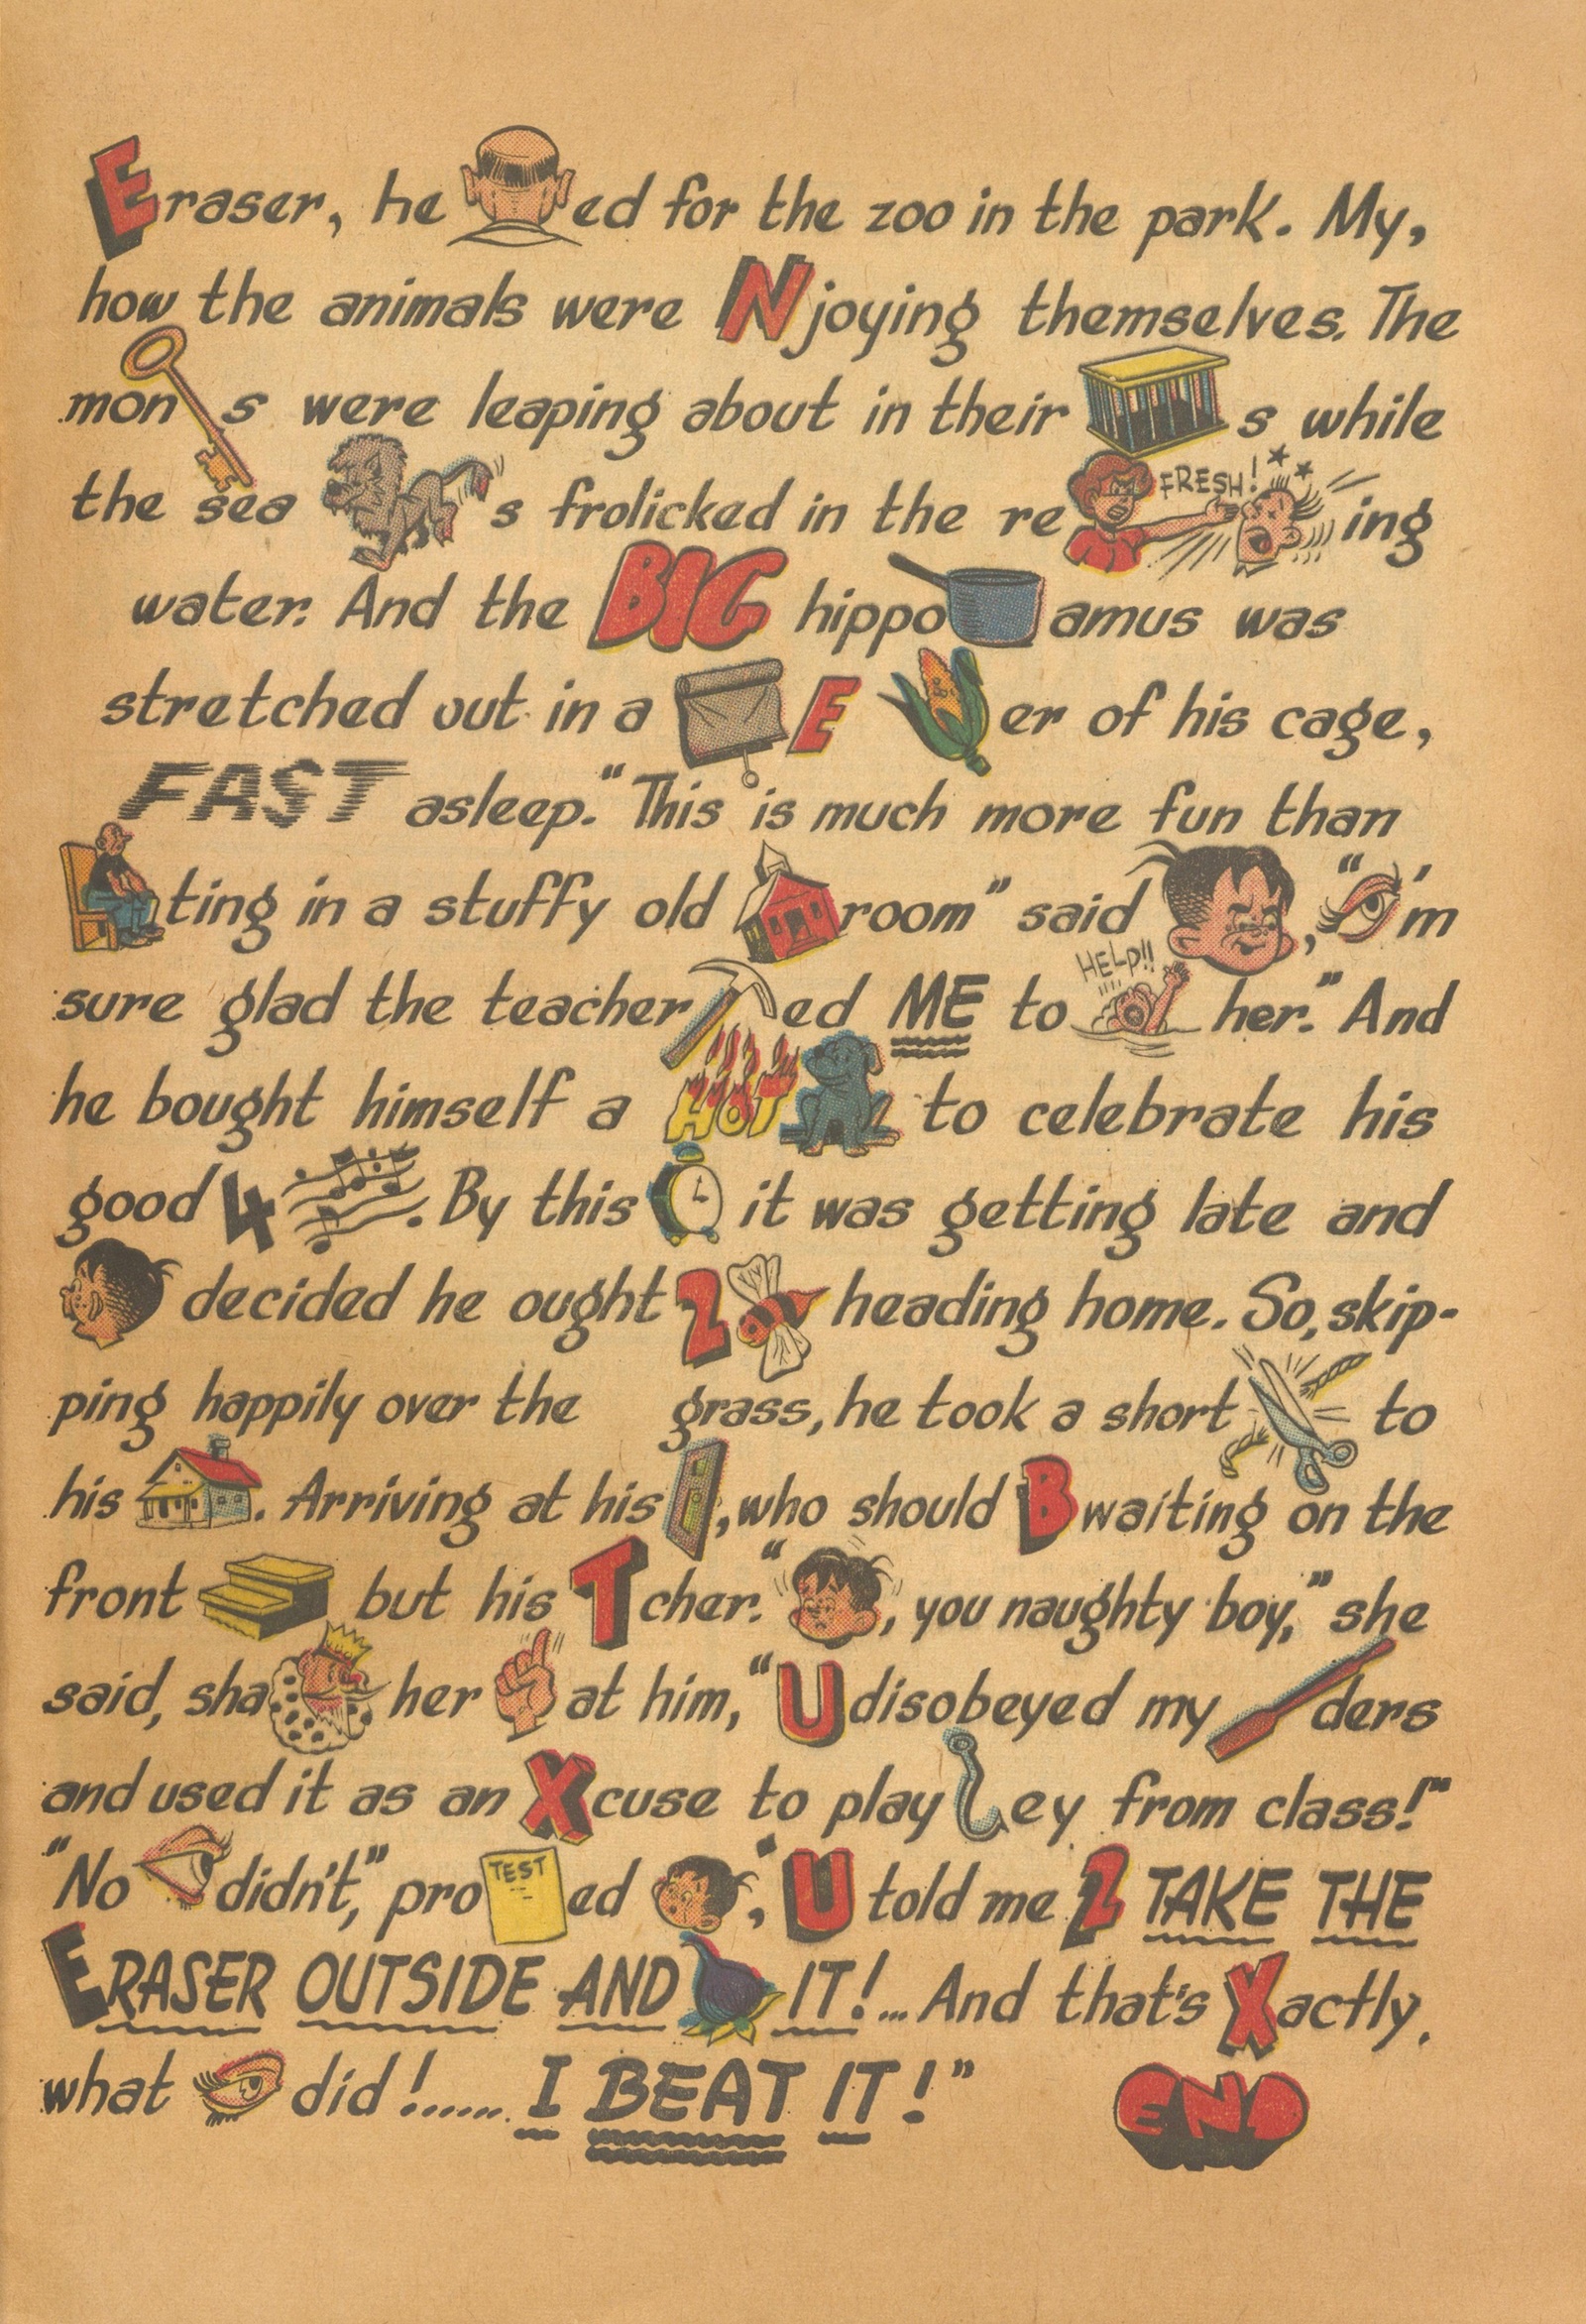 Eraser, he ed for the zoo in the park. My,
how the animals were Njoying themselves. The
mon s were leaping about in their s while
the sea 's frolicked in the re FRESH! ing
water. And the BIG hippo amus was
stretched out in a E er of his cage,
FAST asleep. "This is much more fun than
ting in a stuffy old room" said , " 'm
sure glad the teacher ed ME to HELP!! her." And
he bought himself a HOT to celebrate his
good 4 . By this it was getting late and
decided he ought 2 heading home. So, skip-
ping happily over the grass, he took a short to
his . Arriving at his , who should B waiting on the
front but his Tcher. " , you naughty boy," she
said, sha her at him, "U disobeyed my ders
and used it as an Xcuse to play ey from class!"
"No didn't," pro TEST ed , "U told me 2 TAKE THE
ERASER OUTSIDE AND IT!... And that's Xactly.
what did!...... I BEAT IT!"
END